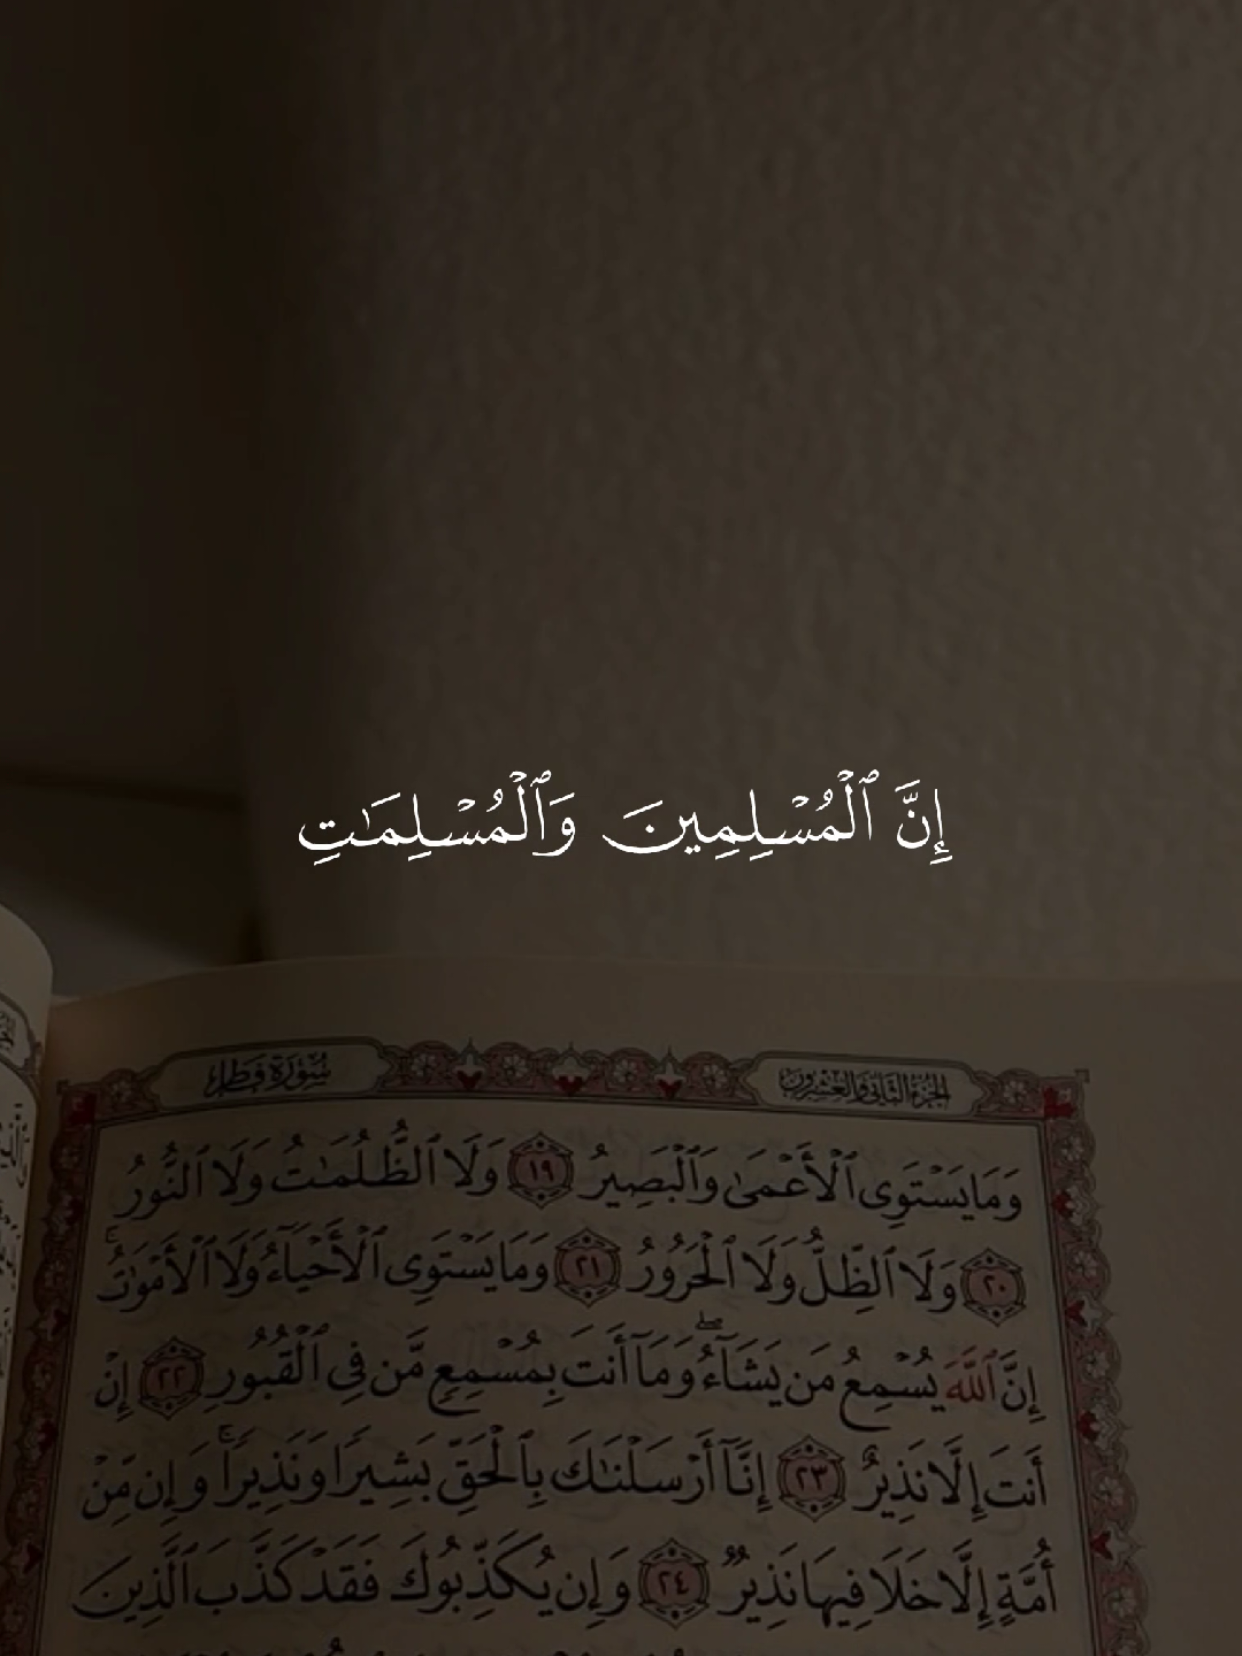 إِنَّ ٱلْمُسْلِمِينَ وَٱلْمُسْلِمَٰتِ
الجزء الثاني والعشرون
سورة فاطر
وَمَا يَسْتَوِى ٱلْأَعْمَىٰ وَٱلْبَصِيرُ ١٩ وَلَا ٱلظُّلُمَٰتُ وَلَا ٱلنُّورُ
٢٠ وَلَا ٱلظِّلُّ وَلَا ٱلْحَرُورُ ٢١ وَمَا يَسْتَوِى ٱلْأَحْيَآءُ وَلَا ٱلْأَمْوَٰتُ ۚ
إِنَّ ٱللَّهَ يُسْمِعُ مَن يَشَآءُ ۖ وَمَآ أَنتَ بِمُسْمِعٍ مَّن فِى ٱلْقُبُورِ ٢٢ إِنْ
أَنتَ إِلَّا نَذِيرٌ ٢٣ إِنَّآ أَرْسَلْنَٰكَ بِٱلْحَقِّ بَشِيرًا وَنَذِيرًا ۚ وَإِن مِّنْ
أُمَّةٍ إِلَّا خَلَا فِيهَا نَذِيرٌ ٢٤ وَإِن يُكَذِّبُوكَ فَقَدْ كَذَّبَ ٱلَّذِينَ